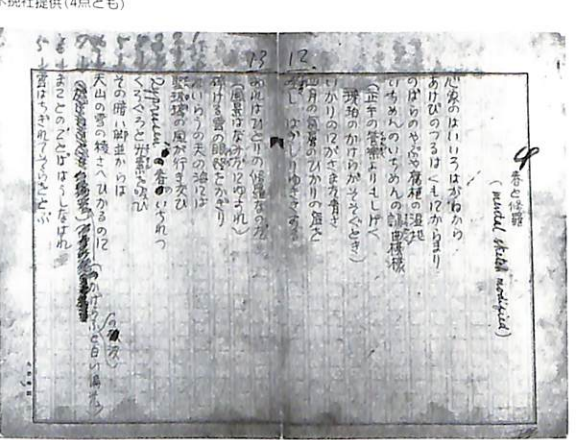 社提供(4点とも)
4
春と修羅
(mental sketch modified)
心象のはいいろはがねから
あけびのつるはくもにからまり
のばらのやぶや腐植の湿地
いちめんのいちめんの諂曲模様
(正午の管楽よりもしげく
琥珀のかけらがそそぐとき)
いかりのにがさまた青さ
四月の気層のひかりの底を
唾し はぎしりゆききする
12.
13
おれはひとりの修羅なのだ
(風景はなみだにゆすれ)
砕ける雲の眼路をかぎり
れいらうの天の海には
聖玻璃の風が行き交ひ
Zypressen 春のいちれつ
くろぐろと光素を吸ひ
その暗い脚並からは
天山の雪の稜さへひかるのに
(かげらふの波と白い偏光)
まことのことばはうしなはれ
雲はちぎれてそらをとぶ